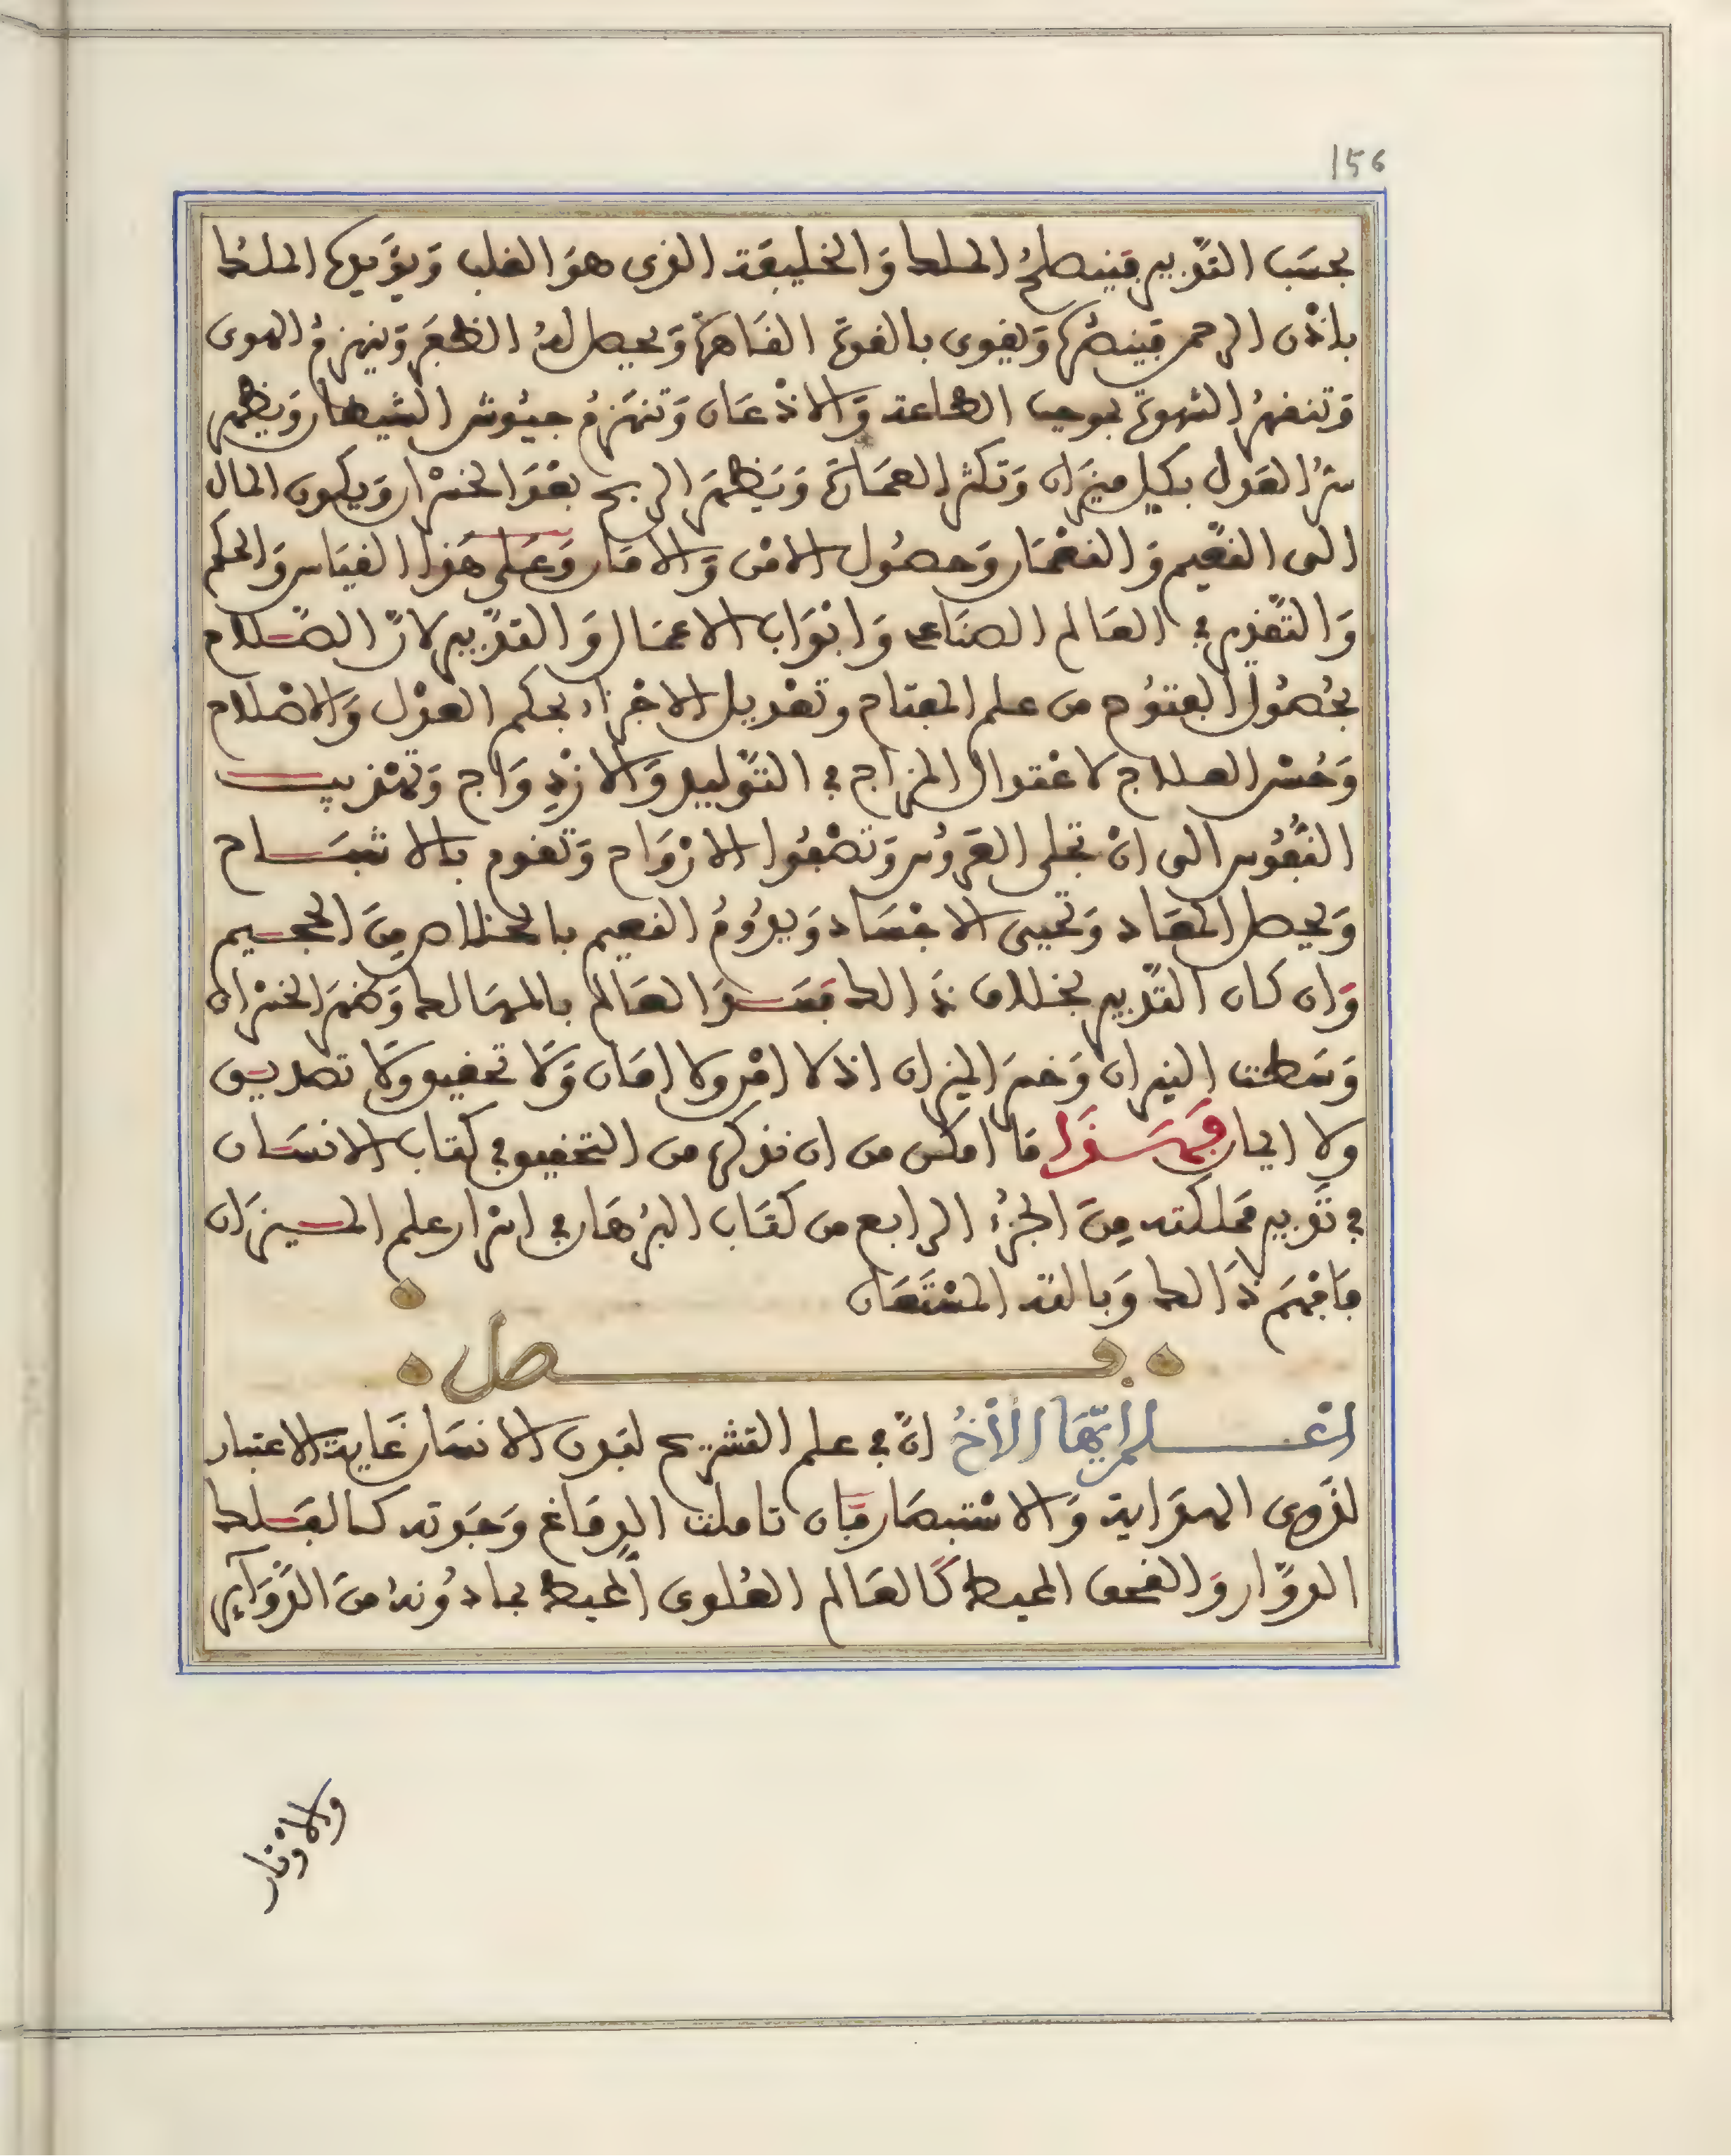 156
بحسب التدبير فينصلح الملك والخليفة الذى هو القلب ويؤيده الملك
باذن الرحمن فينصره ويقوى بالقوة القاهرة ويحصل له الظفر وينهزم الهوى
وتنقهر الشهوة بموجب الطاعة والاذعان وتنهزم جيوش الشيطان ويظهر
سر العدل بكل ميزان وتكثر العمارة ويظهر الربح بعد الخسران ويكون المال
الى النعيم والنعمان وحصول الامن والامان وعلى هذا القياس والحكم
والتقديم في العالم الصناعى وابواب الاعمال والتدبير لان الصلاح
بحصول الفتوح من علم المفتاح وتعديل الاجزاء بحكم العدل والاصلاح
وحسن العلاج لاعتدال المزاج في التوليد والازدواج وتهذيب
النفوس الى ان تجلى العروس وتصفوا الارواح وتقوم بالاشباح
ويحصل المعاد وتحيى الاجساد ويدوم النعيم بالخلاص من الجحيم
وان كان التدبير بخلاف ذالك فسد العالم بالمهالك وظهر الخسران
وسطت النيران وخسر الميزان اذ لا امن ولا امان ولا تحقيق ولا تصديق
ولا ايمان فهذا ما امكن من ان نذكره من التحقيق في كتاب الانسان
في تدبير مملكته من الجزء الرابع من كتاب البرهان في اسرار علم الميزان
فافهم ذالك وبالله المستعان
فصل
اعلم ايها الاخ ان في علم التشريح لبدن الانسان غاية الاعتبار
لذوى الهداية والاستبصار فان تاملت الدماغ وجدته كالفلك
الدوار والقحف المحيط كالعالم العلوى المحيط بما دونه من الدوآير
والاوتار